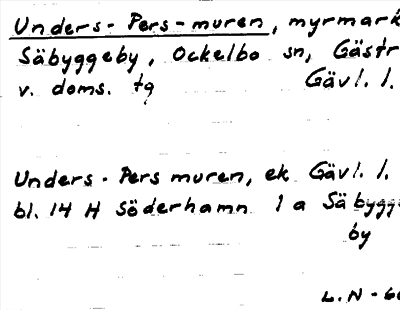 Unders-Pers-muren, myrmark
Säbyggeby, Ockelbo sn, Gästr
v. doms. tg Gävl. l.
Unders-Pers muren, ek Gävl. l.
bl. 14 H Söderhamn 1 a Säbygge
by
L.N-60